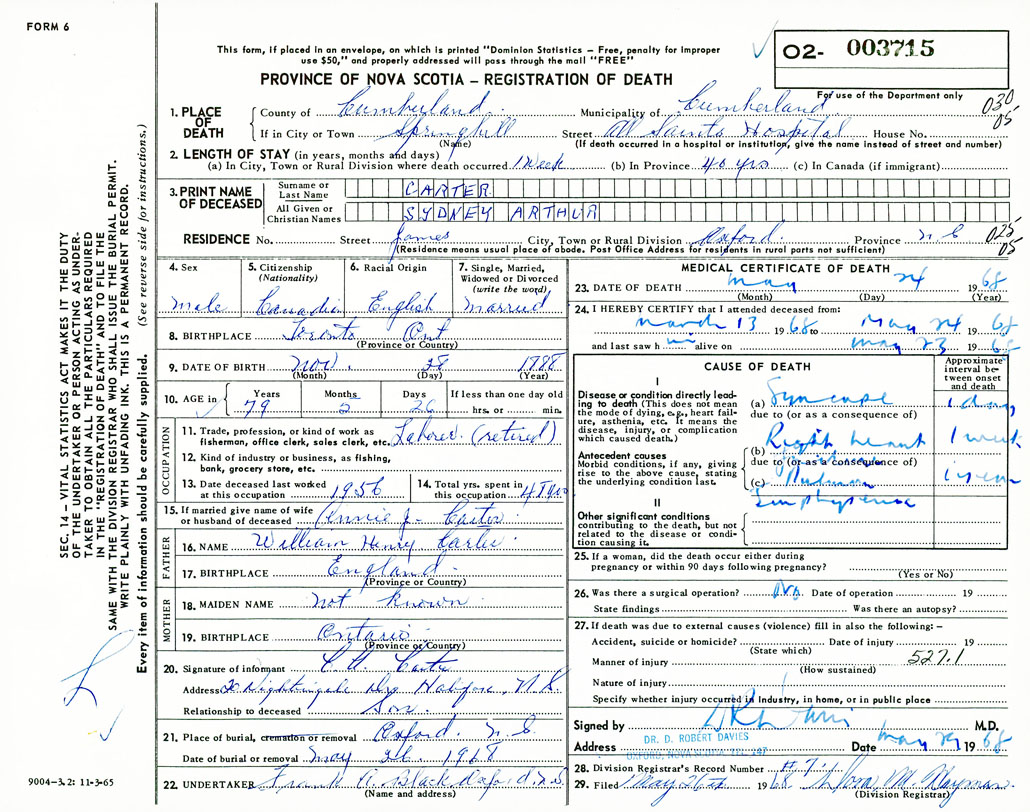 FORM 6
This form, if placed in an envelope, on which is printed "Dominion Statistics – Free, penalty for improper
use $50," and properly addressed will pass through the mail "FREE"
O2- 003715
PROVINCE OF NOVA SCOTIA – REGISTRATION OF DEATH
For use of the Department only
030
05
1. PLACE OF DEATH
County of Cumberland Municipality of Cumberland
If in City or Town Springhill Street All Saints Hospital House No.
(Name) (If death occurred in a hospital or institution, give the name instead of street and number)
2. LENGTH OF STAY (in years, months and days)
(a) In City, Town or Rural Division where death occurred 1 Week (b) In Province 40 yrs (c) In Canada (if immigrant)
3. PRINT NAME OF DECEASED
Surname or Last Name CARTER
All Given or Christian Names SYDNEY ARTHUR
RESIDENCE No. Street James City, Town or Rural Division Oxford Province N S
025
05
(Residence means usual place of abode. Post Office Address for residents in rural parts not sufficient)
4. Sex 5. Citizenship (Nationality) 6. Racial Origin 7. Single, Married, Widowed or Divorced (write the word)
male Canadian English Married
8. BIRTHPLACE Toronto Ont
(Province or Country)
9. DATE OF BIRTH Nov. 28 1888
(Month) (Day) (Year)
10. AGE in Years Months Days If less than one day old
79 26 hrs. or min.
OCCUPATION
11. Trade, profession, or kind of work as
fisherman, office clerk, sales clerk, etc. Laborer (retired)
12. Kind of industry or business, as fishing,
bank, grocery store, etc.
13. Date deceased last worked at this occupation 1956
14. Total yrs. spent in this occupation
15. If married give name of wife
or husband of deceased Annie J. Carter
FATHER
16. NAME William Henry Carter
17. BIRTHPLACE England
(Province or Country)
MOTHER
18. MAIDEN NAME not known
19. BIRTHPLACE Ontario
(Province or Country)
20. Signature of informant Carter
Address 20 Nightingale Dr Halifax N.S.
Relationship to deceased Son
21. Place of burial, cremation or removal Oxford, N.S.
Date of burial or removal May 26 1968
22. UNDERTAKER Frank A. Black Oxford N.S.
(Name and address)
MEDICAL CERTIFICATE OF DEATH
23. DATE OF DEATH May 24 1968
(Month) (Day) (Year)
24. I HEREBY CERTIFY that I attended deceased from:
March 13 1968 to May 24 1968
and last saw h im alive on May 23 1968
CAUSE OF DEATH
Approximate interval between onset and death
I
Disease or condition directly lead-
ing to death (This does not mean
the mode of dying, e.g., heart fail-
ure, asthenia, etc. It means the
disease, injury, or complication
which caused death.)
(a) Syncope 1 day
due to (or as a consequence of)
Antecedent causes
Morbid conditions, if any, giving
rise to the above cause, stating
the underlying condition last.
(b) Right heart 1 week
due to (or as a consequence of)
(c)
Emphysema
II
Other significant conditions
contributing to the death, but not
related to the disease or condi-
tion causing it.
25. If a woman, did the death occur either during
pregnancy or within 90 days following pregnancy?
(Yes or No)
26. Was there a surgical operation? No Date of operation 19
State findings Was there an autopsy?
27. If death was due to external causes (violence) fill in also the following: –
Accident, suicide or homicide? Date of injury 19
(State which)
Manner of injury 527.1
(How sustained)
Nature of injury
Specify whether injury occurred in Industry, in home, or in public place
Signed by M.D.
DR. D. ROBERT DAVIES
OXFORD, NOVA SCOTIA TEL 147
Address Date May 1968
28. Division Registrar's Record Number
29. Filed May 26th 1968
(Division Registrar)
SEC. 14 – VITAL STATISTICS ACT MAKES IT THE DUTY
OF THE UNDERTAKER OR PERSON ACTING AS UNDER-
TAKER TO OBTAIN ALL THE PARTICULARS REQUIRED
IN THE "REGISTRATION OF DEATH" AND TO FILE THE
SAME WITH THE DIVISION REGISTRAR WHO SHALL ISSUE THE BURIAL PERMIT.
WRITE PLAINLY WITH UNFADING INK. THIS IS A PERMANENT RECORD.
Every item of information should be carefully supplied. (See reverse side for instructions.)
9004-3.2: 11-3-65